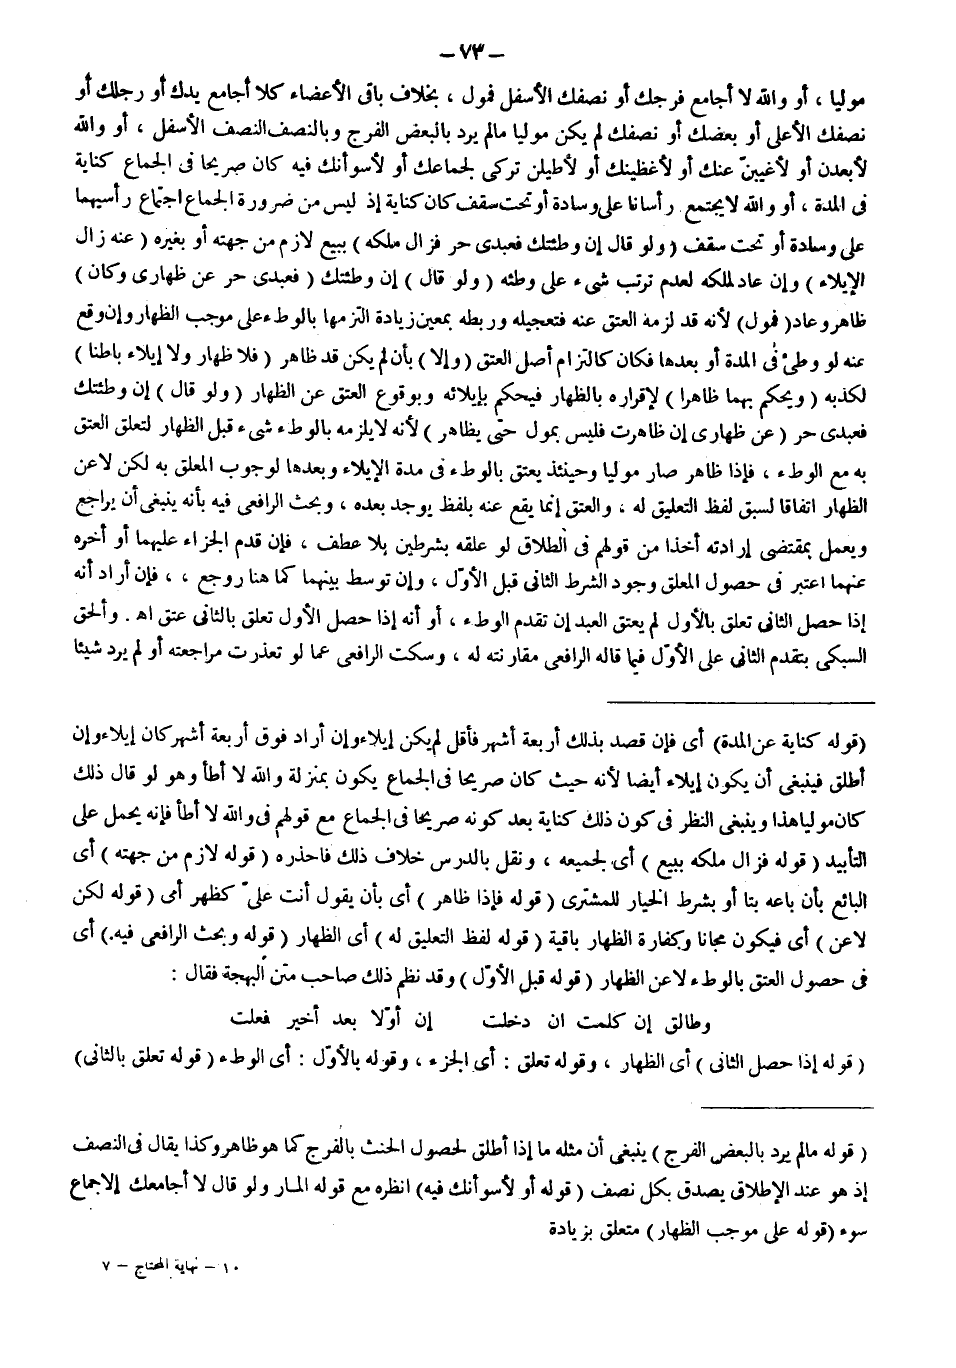 – ٧٣ –
موليا ، أو والله لا أجامع فرجك أو نصفك الأسفل فمول ، بخلاف باقى الأعضاء كلا أجامع يدك أو رجلك أو
نصفك الأعلى أو بعضك أو نصفك لم يكن موليا مالم يرد بالبعض الفرج وبالنصف النصف الأسفل ، أو والله
لأبعدن أو لأغيبنّ عنك أو لأغظينك أو لأطيلن تركى لجماعك أو لأسوأنك فيه كان صريحا فى الجماع كناية
فى المدة ، أو والله لايجتمع رأسانا على وسادة أو تحت سقف كان كناية إذ ليس من ضرورة الجماع اجتماع رأسيهما
على وسادة أو تحت سقف ( ولو قال إن وطئتك فعبدى حر فزال ملكه ) ببيع لازم من جهته أو بغيره ( عنه زال
الإيلاء ) وإن عاد لملكه لعدم ترتب شىء على وطئه ( ولو قال ) إن وطئتك ( فعبدى حر عن ظهارى وكان )
ظاهر وعاد ( فمول ) لأنه قد لزمه العتق عنه فتعجيله وربطه بمعين زيادة التزمها بالوطء على موجب الظهار وإن وقع
عنه لو وطئ فى المدة أو بعدها فكان كالتزام أصل العتق ( وإلا ) بأن لم يكن قد ظاهر ( فلا ظهار ولا إيلاء باطنا )
لكذبه ( ويحكم بهما ظاهرا ) لإقراره بالظهار فيحكم بإيلائه وبوقوع العتق عن الظهار ( ولو قال ) إن وطئتك
فعبدى حر ( عن ظهارى إن ظاهرت فليس بمول حتى يظاهر ) لأنه لايلزمه بالوطء شىء قبل الظهار لتعلق العتق
به مع الوطء ، فإذا ظاهر صار موليا وحينئذ يعتق بالوطء فى مدة الإيلاء وبعدها لوجوب المعلق به لكن لاعن
الظهار اتفاقا لسبق لفظ التعليق له ، والعتق إنما يقع عنه بلفظ يوجد بعده ، وبحث الرافعى فيه بأنه ينبغى أن يراجع
ويعمل بمقتضى إرادته أخذا من قولهم فى الطلاق لو علقه بشرطين بلا عطف ، فإن قدم الجزاء عليهما أو أخره
عنهما اعتبر فى حصول المعلق وجود الشرط الثانى قبل الأوّل ، وإن توسط بينهما كما هنا روجع ، ، فإن أراد أنه
إذا حصل الثانى تعلق بالأول لم يعتق العبد إن تقدم الوطء ، أو أنه إذا حصل الأول تعلق بالثانى عتق اه . وألحق
السبكى بتقدم الثانى على الأوّل فيما قاله الرافعى مقارنته له ، وسكت الرافعى عما لو تعذرت مراجعته أو لم يرد شيئا
(قوله كناية عن المدة) أى فإن قصد بذلك أربعة أشهر فأقل لم يكن إيلاء وإن أراد فوق أربعة أشهر كان إيلاء وإن
أطلق فينبغى أن يكون إيلاء أيضا لأنه حيث كان صريحا فى الجماع يكون بمنزلة والله لا أطأ وهو لو قال ذلك
كان موليا هذا وينبغى النظر فى كون ذلك كناية بعد كونه صريحا فى الجماع مع قولهم فى والله لا أطأ فإنه يحمل على
التأبيد ( قوله فزال ملكه ببيع ) أى لجميعه ، ونقل بالدرس خلاف ذلك فاحذره ( قوله لازم من جهته ) أى
البائع بأن باعه بتا أو بشرط الخيار للمشترى ( قوله فإذا ظاهر ) أى بأن يقول أنت علىّ كظهر أمى ( قوله لكن
لاعن ) أى فيكون مجانا وكفارة الظهار باقية ( قوله لفظ التعليق له ) أى الظهار ( قوله وبحث الرافعى فيه.) أى
فى حصول العتق بالوطء لاعن الظهار ( قوله قبل الأوّل ) وقد نظم ذلك صاحب متن البهجة فقال :
وطالق إن كلمت ان دخلت إن أوّلا بعد أخير فعلت
( قوله إذا حصل الثانى ) أى الظهار ، وقوله تعلق : أى الجزء ، وقوله بالأوّل : أى الوطء ( قوله تعلق بالثانى)
( قوله مالم يرد بالبعض الفرج ) ينبغى أن مثله ما إذا أطلق لحصول الحنث بالفرج كما هو ظاهر وكذا يقال فى النصف
إذ هو عند الإطلاق يصدق بكل نصف ( قوله أو لأسوأنك فيه) انظره مع قوله المار ولو قال لا أجامعك إلاجماع
سوء (قوله على موجب الظهار) متعلق بزيادة
١٠ – نهاية المحتاج – ٧